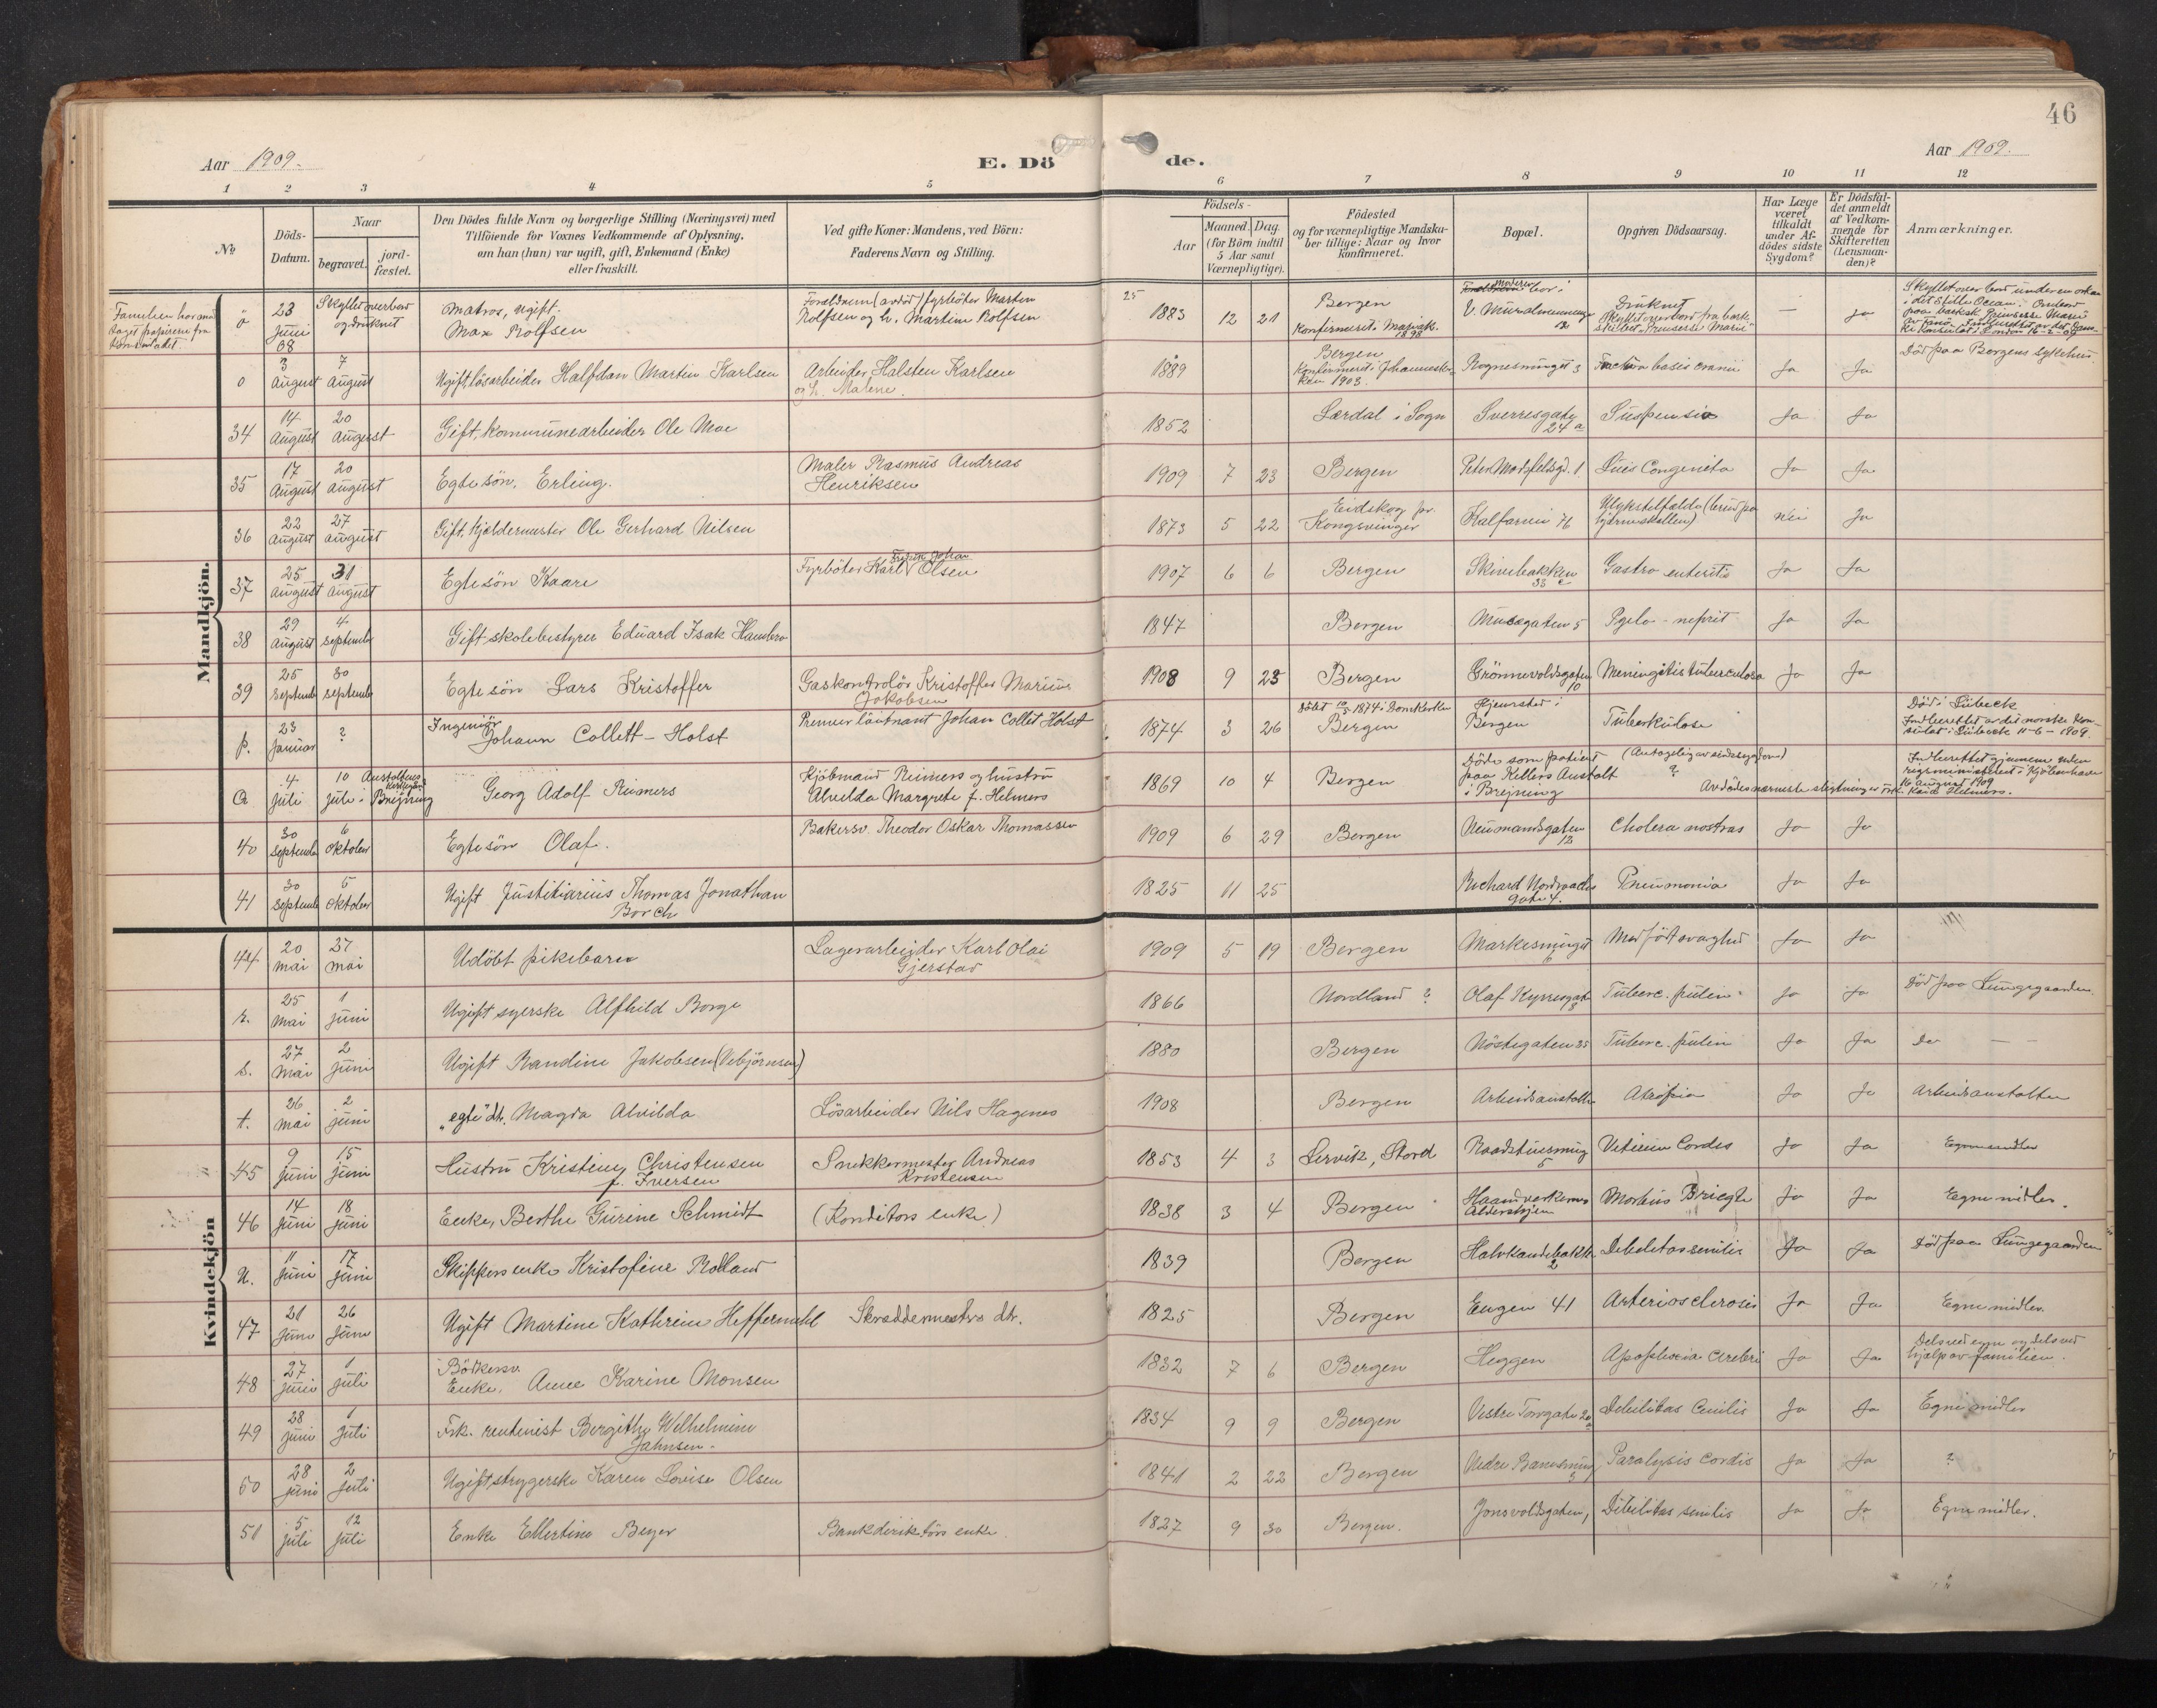 46
Aar 1909.
E. Döde.
Aar 1909.
1 2 3 4 5 6 7 8 9 10 11 12
No.
Döds-Datum.
Naar
begravet.
jordfæstet.
Den Dödes fulde Navn og borgerlige Stilling (Næringsvei) med
Tilföiende for Voxnes Vedkommende af Oplysning,
om han (hun) var ugift, gift, Enkemand (Enke)
eller fraskilt.
Ved gifte Koner: Mandens, ved Börn:
Faderens Navn og Stilling.
Födsels-
Aar
Maaned. Dag.
(for Börn indtil
5 Aar samt
Værnepligtige).
Födested
og for værnepligtige Mandska-
ber tillige: Naar og hvor
konfirmeret.
Bopæl.
Opgiven Dödsaarsag.
Har Læge
været
tilkaldt
under Af-
dödes sidste
Sygdom?
Er Dödsfal-
det anmeldt
af Vedkom-
mende for
Skifteretten
(Lensman-
den)?
Anmærkninger.
Mandkjön.
ö 23 Juni 08 Skyllet overbord og druknet Matros, ugift. Max Rolfsen Forældrene (avdöd) fyrböter Martin Rolfsen og h. Martine Rolfsen 1883 12 21 Bergen Konfirmert i Mariak. 1898 Druknet — Ja
o 3 August 7 August Ugift, lösarbeider Halfdan Martin Karlsen Arbeider Halsten Karlsen og h. Malene. 1889 Bergen Konfirmert i Johanneskirken 1903. Rognesmuget 3 Fractura basis cranii Ja Ja Död paa Bergens Sykehus
34 14 August 20 August Gift, Kommunearbeider Ole Moe 1852 Lærdal i Sogn Sverresgate 24 a Suspensio Ja Ja
35 17 August 20 August Egte sön, Erling. Maler Rasmus Andreas Henriksen 1909 7 23 Bergen Peter Motzfeldsgd. 1 Lues Congenita Ja Ja
36 22 August 27 August Gift, Kjeldermester Ole Gerhard Nilsen 1873 5 22 Eidskog pr. Kongsvinger Kalfarvei 76 Ulykkestilfælde Nei Ja
37 25 August 31 August Egte sön Kaare Fyrböter Karl Johan Olsen 1907 6 6 Bergen Skivebakken 33 c Gastro enteritis Ja Ja
38 29 August 4 September Gift skolebestyrer Edvard Isak Hambro 1847 Bergen Musegaten 5 Pyelo-nefrit Ja Ja
39 25 September 30 September Egte sön Lars Kristoffer Gaskontrolör Kristoffer Marius Jakobsen 1908 9 23 Bergen Grönnevoldsgaten 10 Meningitis tuberculosa Ja Ja
p. 23 Januar ? Ingeniör Johann Collett-Holst Premierlöitnant Johan Collet Holst 1874 3 26 Döbt 1874 i Domkirken Bergen Hjemsted i Bergen Tuberkulose Död i Lübeck Indberettet av det norske Konsulat i Lübeck 11-6-1909.
4 Juli 10 Juli Anstaltens kirkegaard i Brejning Georg Adolf Reimers Kjöbmand Reimers og hustru Alvilda Margrete f. Helmers 1869 10 4 Bergen Döde som patient paa Kellers Anstalt i Brejning (Antagelig av sindssygdom) ? Avdödes nærmeste slegtning er Kaia Helmers.
40 30 September 6 Oktober Egte sön Olaf. Bakersv. Theodor Oskar Thomassen 1909 6 29 Bergen Neumandsgaten 12 Cholera nostras Ja Ja
41 30 September 5 Oktober Ugift Justitiarius Thomas Jonathan Borch 1825 11 25 Richard Nordraachs gate 4. Pneumonia Ja Ja
Kvindekjön
44 20 Mai 27 Mai Udöbt pikebarn Lagerarbeider Karl Olai Gjerstad 1909 5 19 Bergen Markesmuget 6 Medfödt svaghed Ja Ja
r. 25 Mai 1 Juni Ugift syerske Alfhild Borge 1866 Nordland ? Olaf Kyrresgate Tuberc. pulm. Ja Ja Död paa Lungegaarden
s. 27 Mai 2 Juni Ugift Randine Jakobsen (Vebjörnsen) 1880 Bergen Nöstegaten 35 Tuberc. pulm. Ja Ja Do — —
t. 26 Mai 2 Juni "egte" dtr. Magda Alvilda Lösarbeider Nils Hagenes 1908 Bergen Arbeidsanstalten Atrofia Ja Ja Arbeidsanstalten
45 9 Juni 15 Juni Hustru Kristine Christensen f. Iversen Snekkermester Andreas Kristensen 1853 4 3 Lervik, Stord Raadstuesmug 5 Vitium Cordis Ja Ja Egne midler
46 14 Juni 18 Juni Enke, Berthe Gurine Schmidt (Konditors enke) 1838 3 4 Bergen Haandverkernes Aldershjem Morbus Brigth Ja Ja Egne midler.
u. 11 Juni 17 Juni Skippers enke Kristofine Rolland 1839 Bergen Halvkandebakken 2 Debilitas senilis Ja Ja Död paa Lungegaarden
47 21 Juni 26 Juni Ugift Martine Kathrine Heffermehl Skreddermesters dtr. 1825 Bergen Engen 41 Arteriosclerosis Ja Ja Egne midler.
48 27 Juni 1 Juli Bödkersv. Enke, Anne Karine Monsen 1832 7 6 Bergen Heggen Apoplexia Cerebri Ja Ja Dels ved egne og dels ved hjælp av familien.
49 28 Juni 1 Juli Frk. rentenist Bergitha Wilhelmine Jahnsen. 1834 9 9 Bergen Vestre Torvgate 20 a Debilitas Senilis Ja Ja Egne midler
50 28 Juni 2 Juli Ugift strygerske Karen Lovise Olsen 1841 2 22 Bergen Paralysis Cordis Ja Ja ?
51 5 Juli 12 Juli Enke Ellertine Beyer Bankdirektörs enke. 1827 9 30 Bergen. Jonsvoldsgaten, Debilitas senilis Ja Ja Egne midler.